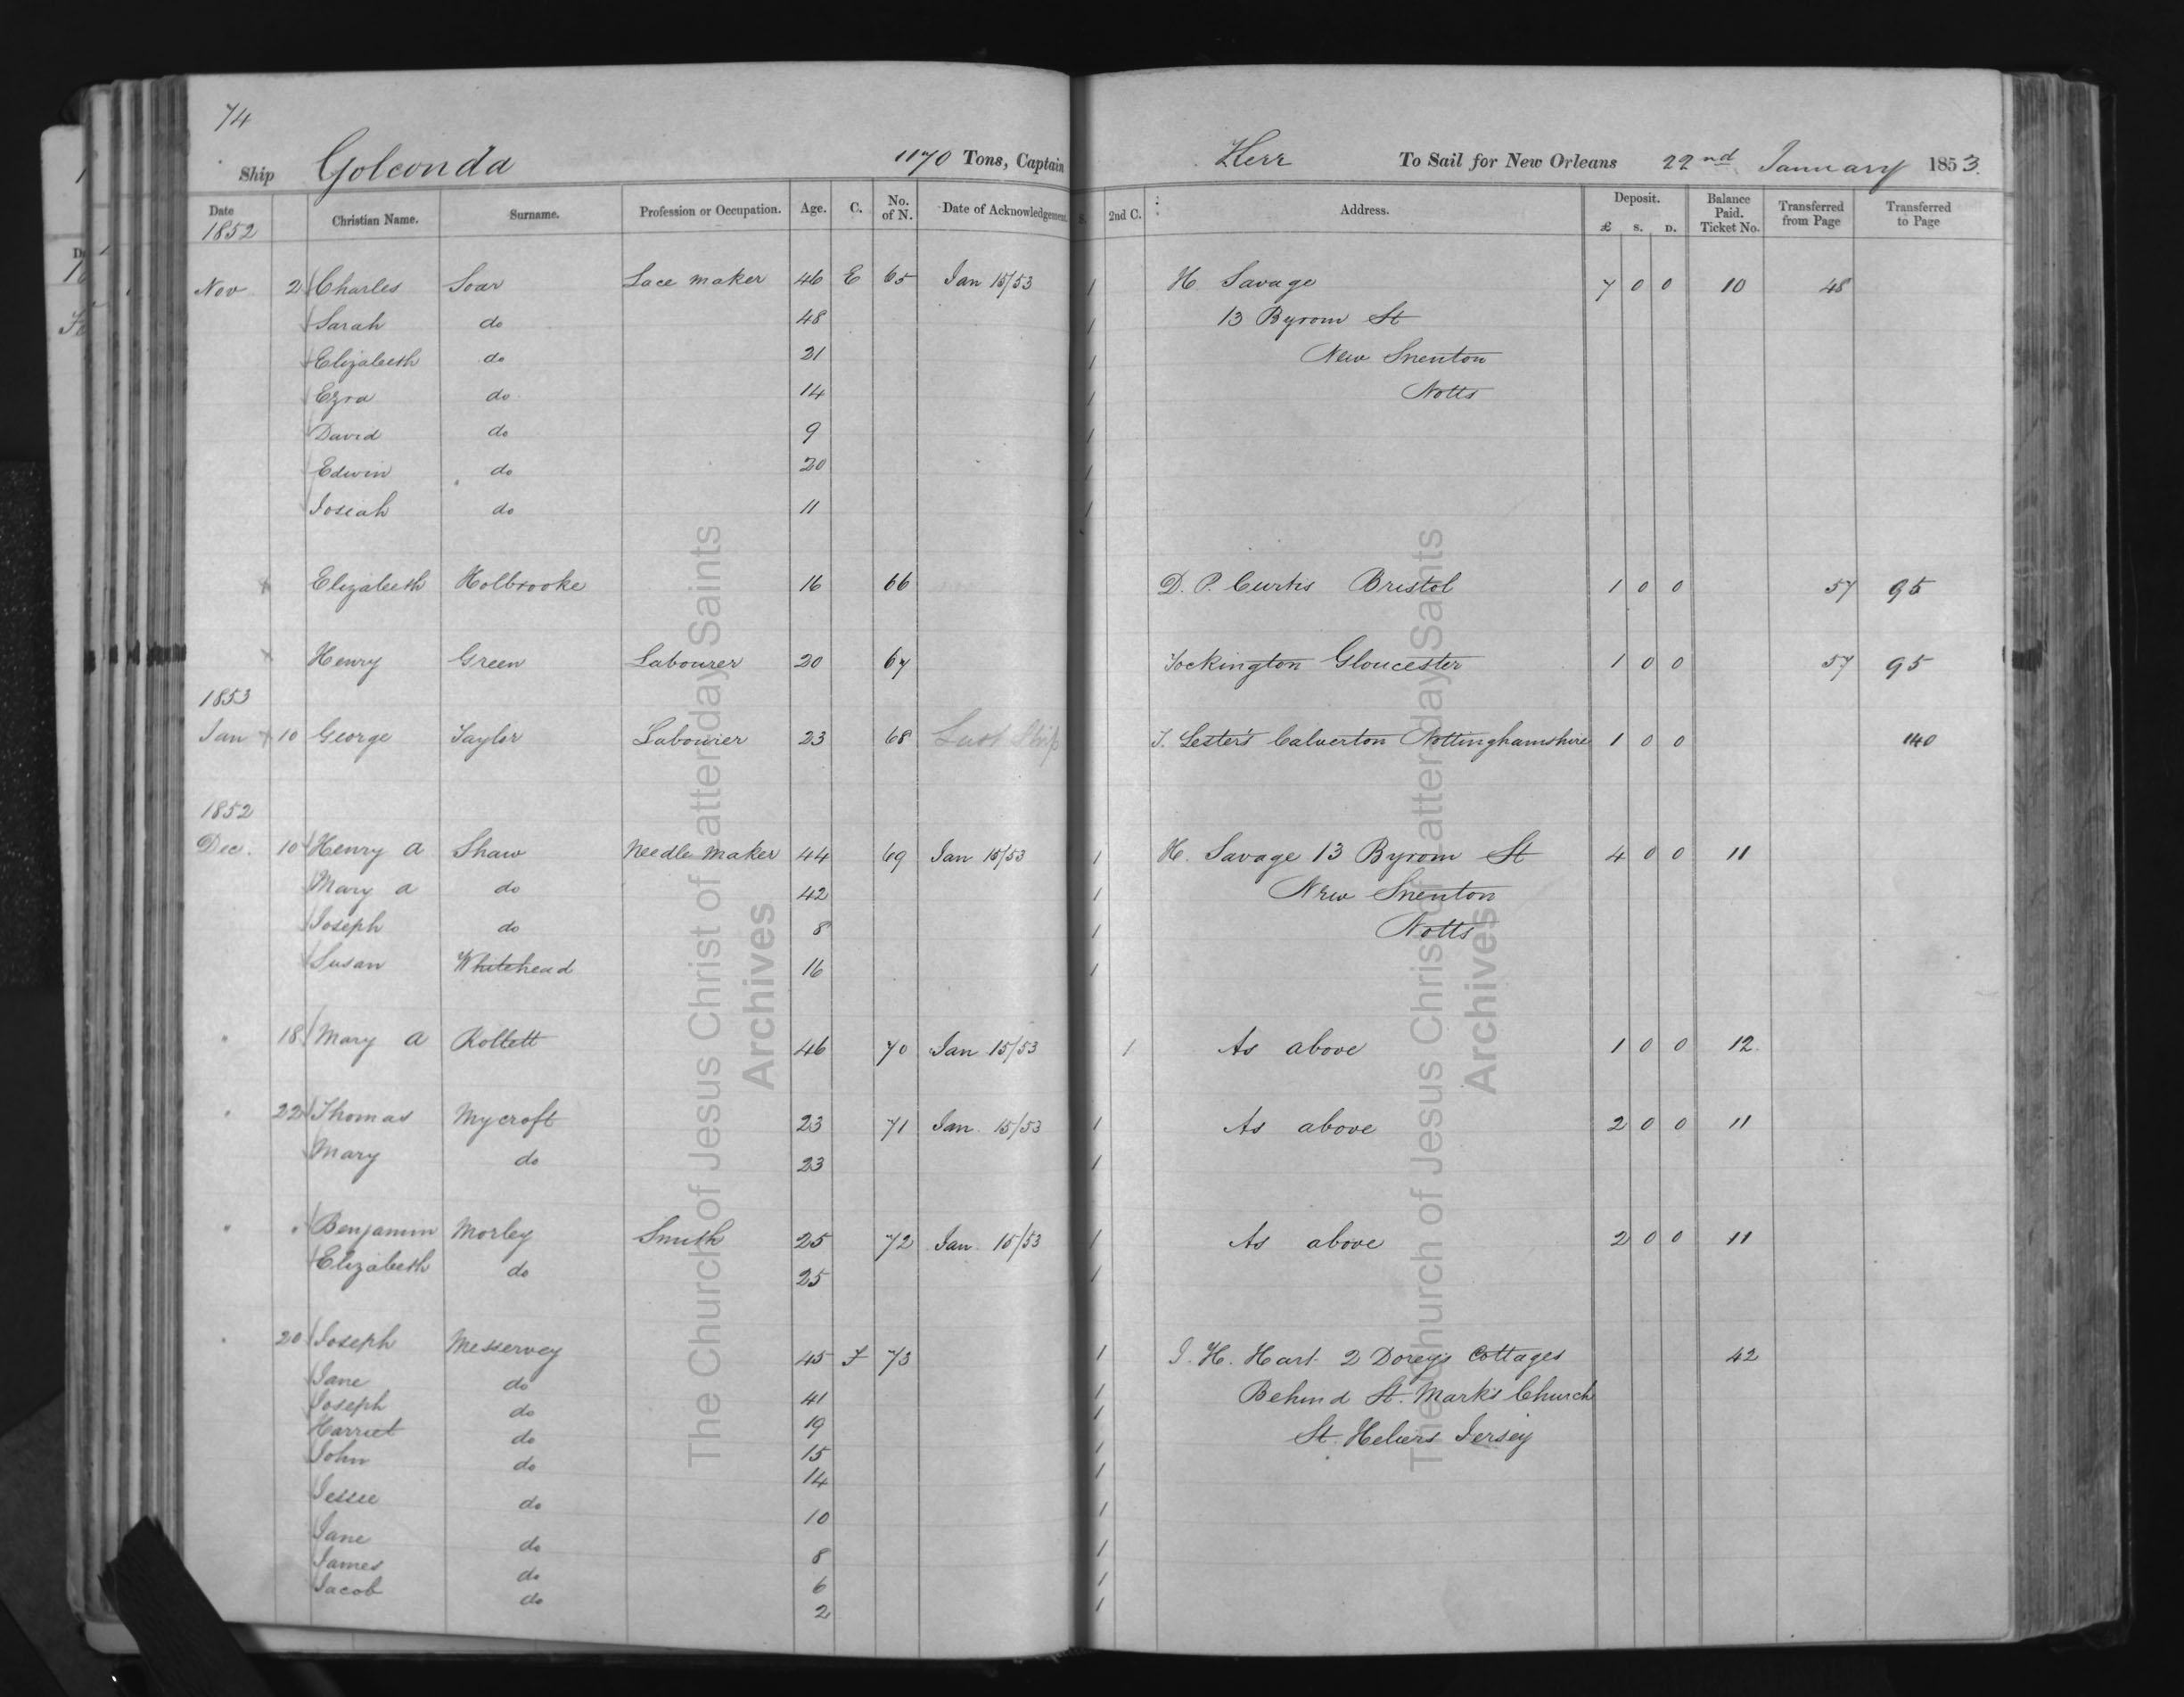 74
Ship Golconda 1170 Tons, Captain Kerr To Sail for New Orleans 22nd January 1853.
Date Christian Name. Surname. Profession or Occupation. Age. C. No. of N. Date of Acknowledgement. S. 2nd C. Address. Deposit. £ S. D. Balance Paid. Ticket No. Transferred from Page Transferred to Page
1852
Nov 2 Charles Soar Lace maker 46 E 65 Jan 15/53 1 H Savage 7 0 0 10 48
Sarah do 48 1 13 Byrom St
Elizabeth do 21 1 New Snenton
Ezra do 14 1 Notts
David do 9 1
Edwin do 20 1
Josiah do 11 1
Elizabeth Holbrooke 16 66 D. P. Curtis Bristol 1 0 0 57 95
Henry Green Labourer 20 67 Tockington Gloucester 1 0 0 57 95
1853
Jan 10 George Taylor Labourer 23 68 Last Ship J. Lester's Calverton Nottinghamshire 1 0 0 140
1852
Dec. 10 Henry A Shaw Needle maker 44 69 Jan 15/53 1 H. Savage 13 Byrom St 4 0 0 11
Mary A do 42 1 New Snenton
Joseph do 8 1 Notts
Susan Whitehead 16 1
" 18 Mary A Kollett 46 70 Jan 15/53 1 As above 1 0 0 12
" 22 Thomas Mycroft 23 71 Jan 15/53 1 As above 2 0 0 11
Mary do 23 1
" " Benjamin Morley Smith 25 72 Jan 15/53 1 As above 2 0 0 11
Elizabeth do 25 1
" 20 Joseph Messervey 45 F 73 1 J. H. Hart 2 Dorey's Cottages 42
Jane do 41 1 Behind St. Mark's Church
Joseph do 19 1
Harriet do 15 1 St. Heliers Jersey
John do 14 1
Jessee do 10 1
Jane do 8 1
James do 6 1
Jacob do 2 1
The Church of Jesus Christ of Latter-day Saints
Archives
The Church of Jesus Christ of Latter-day Saints
Archives